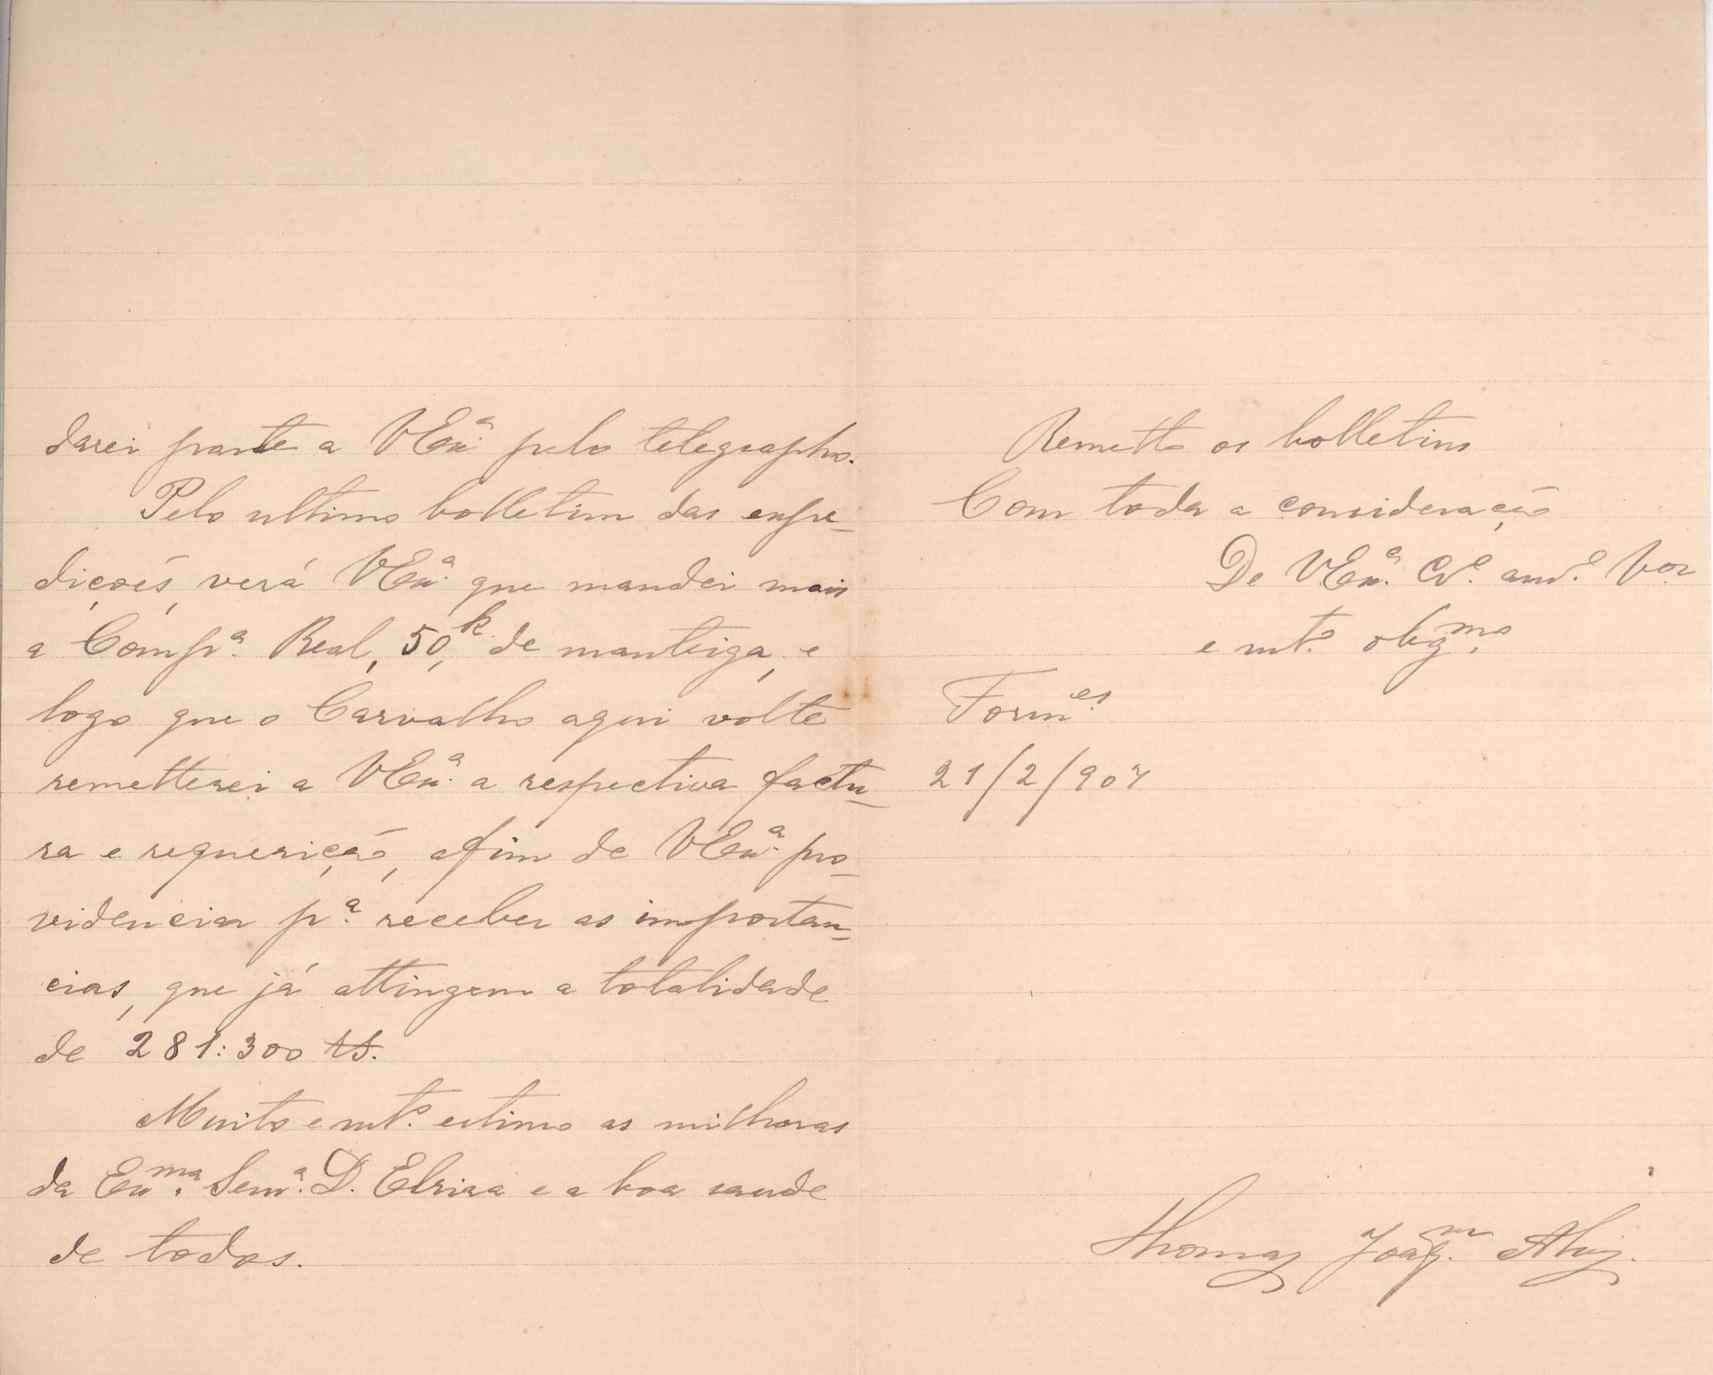 darei parte a VExª pelo telegrapho.
Pelo ultimo bolletim das expe-
dições, verá VExª que mandei mais
a Compª Real, 50,k de manteiga, e
logo que o Carvalho aqui volte
remetterei a VExª a respectiva factu-
ra e requerição, afim de VExª pro-
videnciar pª receber as importan-
cias, que já attingem a totalidade
de 281:300 rs.
Muito e mtº estimo as milhoras
da Exma Senrª D. Elvira e a boa saude
de todos.
Remetto os bolletins
Com toda a consideração
De VExª Crº amº Vor
e mtº obigmo
Formes
21/2/907
Thomaz Joaqm